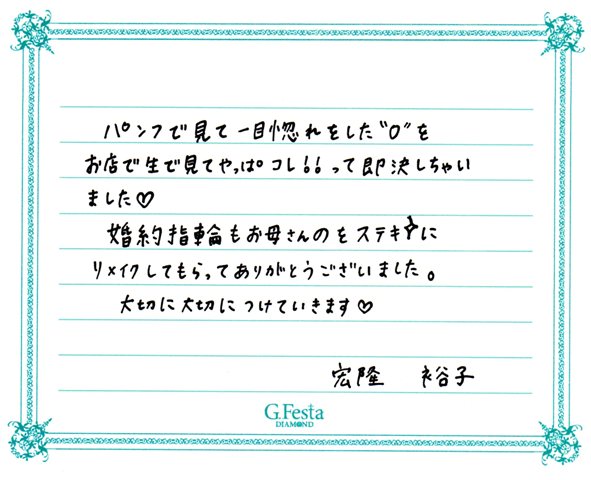 パンフで見て一目惚れをした"O"を
お店で生で見てやっぱ。コレ!!って即決しちゃい
ました♡
婚約指輪もお母さんのをステキ✦に
リメイクしてもらってありがとうございました。
大切に大切につけていきます♡
宏隆 裕子
G.Festa
DIAMOND